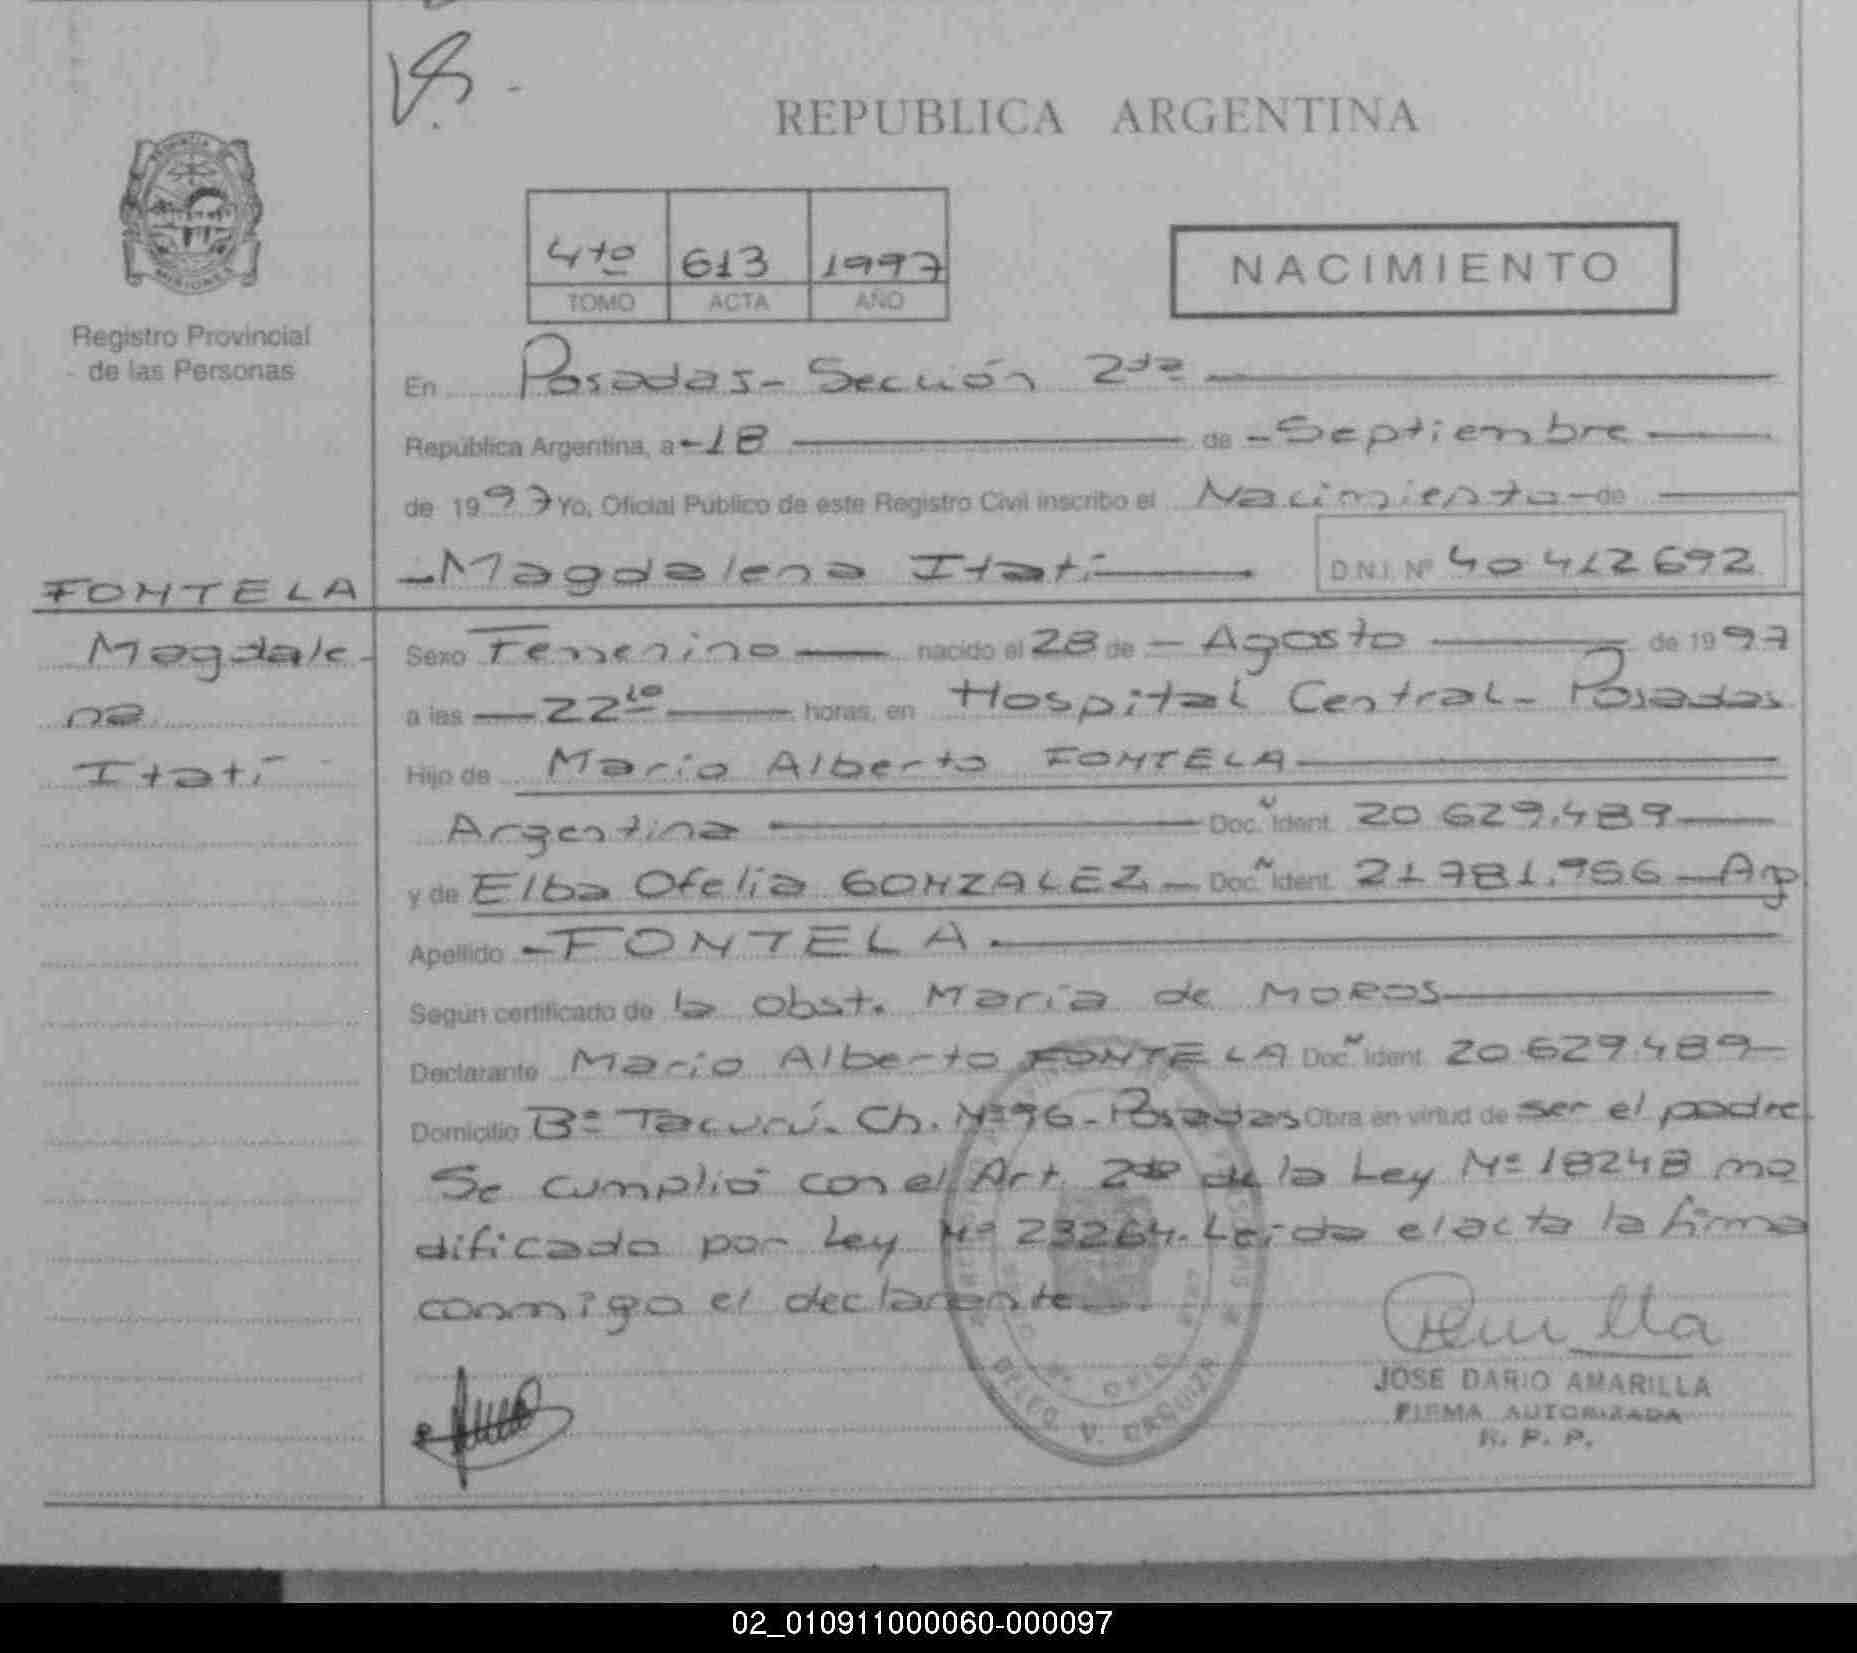 REPUBLICA ARGENTINA
4to 613 1997
TOMO ACTA AÑO
NACIMIENTO
Registro Provincial
de las Personas
En Posadas - Sección 2da
República Argentina, a - 18 de - Septiembre
de 1997 Yo, Oficial Público de este Registro Civil inscribo el Nacimiento - de
- Magdalena Itatí D.N.I. Nº 40 412 692
FONTELA
Magdale-
na
Itatí
Sexo Femenino nacido el 28 de - Agosto de 1997
a las 22 10 horas, en Hospital Central - Posadas
Hijo de Mario Alberto FONTELA
Argentina Doc. Ident. 20 629.489
y de Elba Ofelia GONZALEZ - Doc. Ident. 21 781.956 - Arg
Apellido - FONTELA.
Según certificado de la Obst. María de MOROS
Declarante Mario Alberto FONTELA Doc. Ident. 20 629.489
Domicilio Bº Tacurú. Ch. Nº 96 - Posadas Obra en virtud de ser el padre
Se cumplió con el Art. 2do de la Ley Nº 18248 mo
dificado por Ley Nº 23264. Leida el acta la firma
conmigo el declarante
JOSE DARIO AMARILLA
FIRMA AUTORIZADA
R. P. P.
DELEG. V. URQUIZA
02_010911000060-000097